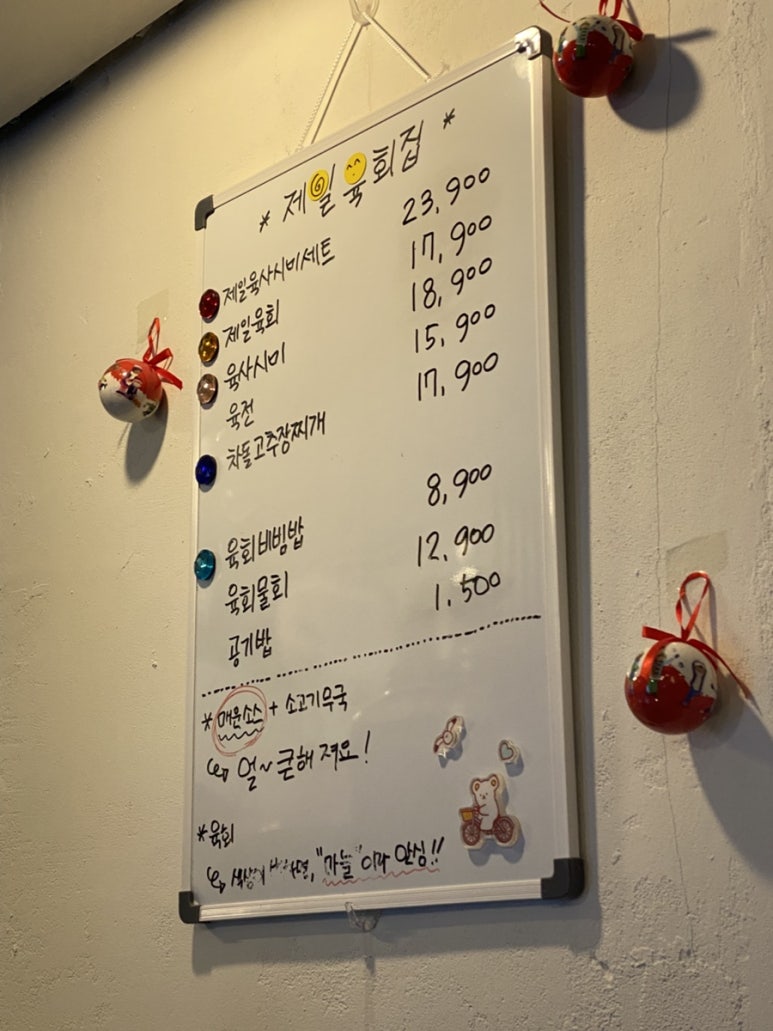 * 제일육회집 *
제일육사시미세트 23,900
제일육회 17,900
육사시미 18,900
육전 15,900
차돌고추장찌개 17,900
육회비빔밥 8,900
육회물회 12,900
공기밥 1,500
* 매운소스 + 소고기무국
↳ 얼~큰해져요!
* 육회
↳ "마늘"이라 안심!!